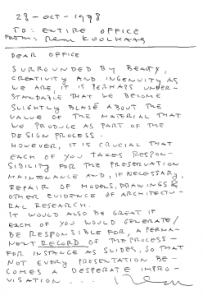 23-OCT-1998
TO: ENTIRE OFFICE
FROM: Rem KOOLHAAS
DEAR OFFICE
SURROUNDED BY BEAUTY,
CREATIVITY AND INGENUITY AS
WE ARE, IT IS PERHAPS UNDER-
STANDABLE THAT WE BECOME
SLIGHTLY BLASÉ ABOUT THE
VALUE OF THE MATERIAL THAT
WE PRODUCE AS PART OF THE
DESIGN PROCESS.
HOWEVER, IT IS CRUCIAL THAT
EACH OF YOU TAKES RESPON-
SIBILITY FOR THE PRESERVATION
MAINTENANCE AND, IF NECESSARY,
REPAIR OF MODELS, DRAWINGS &
OTHER EVIDENCE OF ARCHITECTU-
RAL RESEARCH.
IT WOULD ALSO BE GREAT IF
EACH OF YOU WOULD GENERATE/
BE RESPONSIBLE FOR, A PERMA-
NENT RECORD OF THE PROCESS -
FOR INSTANCE AS SLIDES, SO THAT
NOT EVERY PRESENTATION BE-
COMES A DESPERATE IMPRO-
VISATION.... Rem